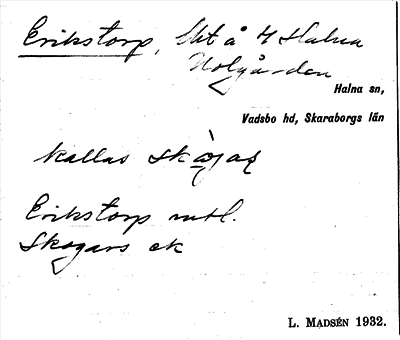 Erikstorp, lht å 4 Halna
Holgården
Halna sn,
Vadsbo hd, Skaraborgs län
kallas
Erikstorp mtl.
Skogars ek
L. MADSÉN 1932.